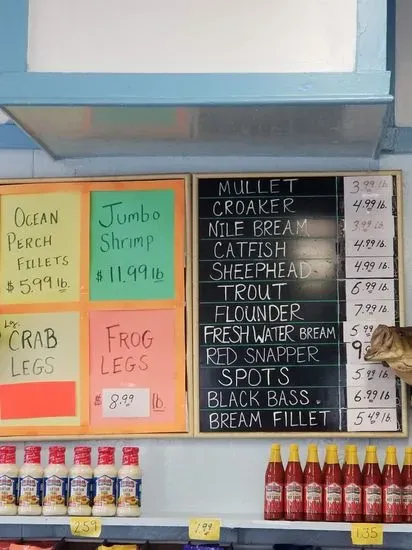 OCEAN
PERCH
FILLETS
$5.99 lb.
Jumbo
Shrimp
$11.99 lb
Lg.
CRAB
LEGS
FROG
LEGS
$8.99 lb.
MULLET 3.99 lb.
CROAKER 4.99 lb.
NILE BREAM 3.99 lb.
CATFISH 4.99 lb.
SHEEPHEAD 4.99 lb.
TROUT 6.99 lb.
FLOUNDER 7.99 lb.
FRESH WATER BREAM 5.99
RED SNAPPER 9
SPOTS 5.99 lb.
BLACK BASS. 6.99 lb.
BREAM FILLET 5.49 lb.
2.59
1.99
1.35